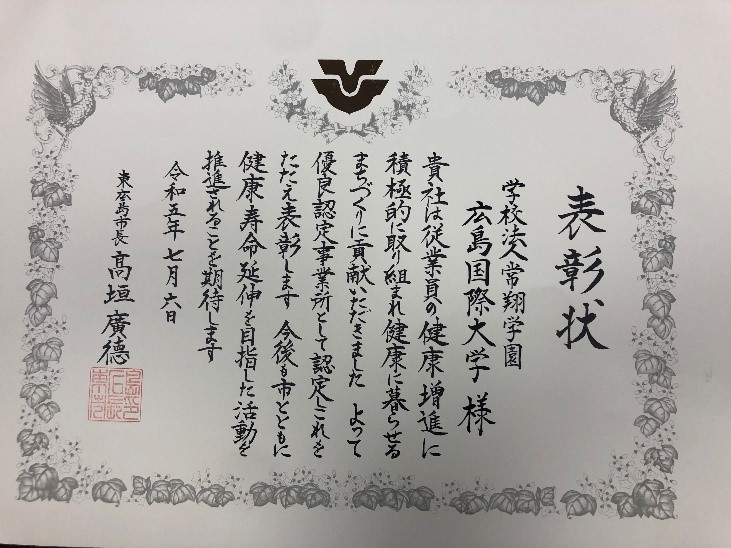 表彰状
学校法人常翔学園
広島国際大学 様
貴社は従業員の健康増進に
積極的に取り組まれ健康に暮らせる
まちづくりに貢献いただきました よって
優良認定事業所として認定しこれを
たたえ表彰します 今後も市とともに
健康寿命延伸を目指した活動を
推進されることを期待します
令和五年七月六日
東広島市長 髙垣廣德